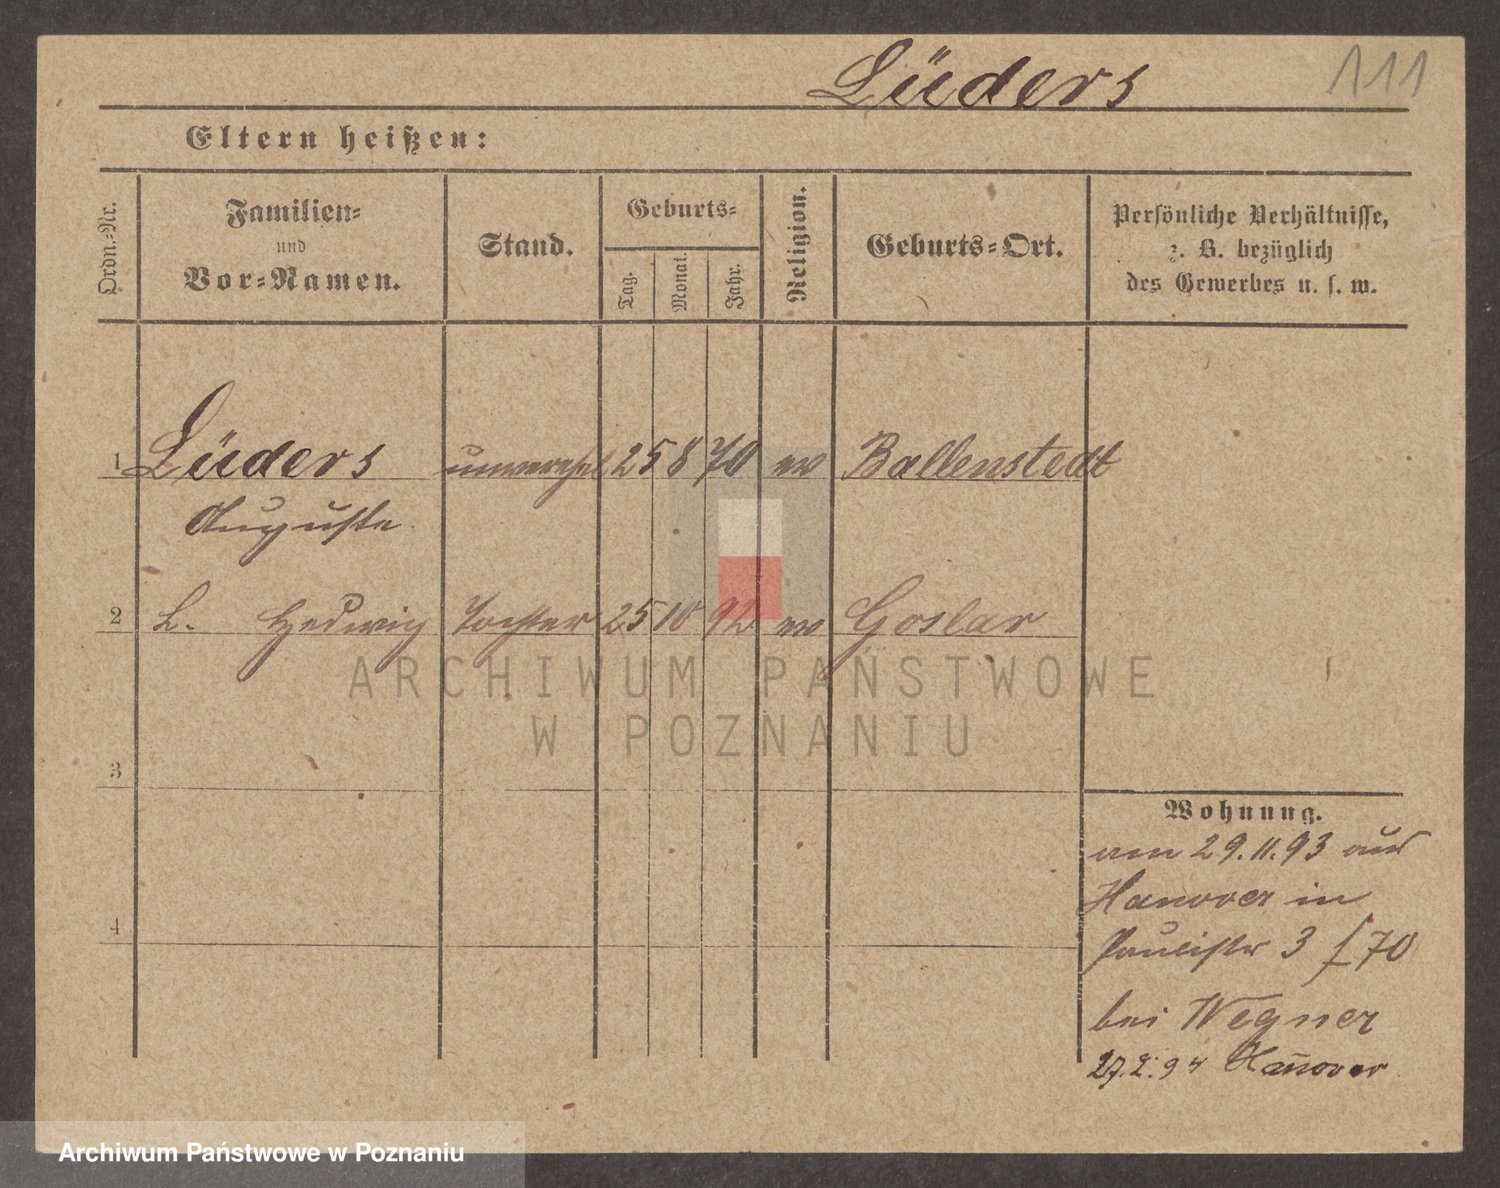 Lüders 111
Eltern heißen:
Ordn.-Nr.
Familien-
und
Vor-Namen.
Stand.
Geburts-
Tag.
Monat.
Jahr.
Religion.
Geburts-Ort.
Persönliche Verhältnisse,
z. B. bezüglich
des Gewerbes u. s. w.
1 Lüders unverehel 25 8 70 ev Ballenstedt
Auguste
2 L. Hedwig Tochter 25 10 92 ev Goslar
ARCHIWUM PAŃSTWOWE
W POZNANIU
3
4
Wohnung.
am 29.11.93 aus
Hanover in
Paulistr 3 f 70
bei Wegner
27.2.94 Han̄over
Archiwum Państwowe w Poznaniu